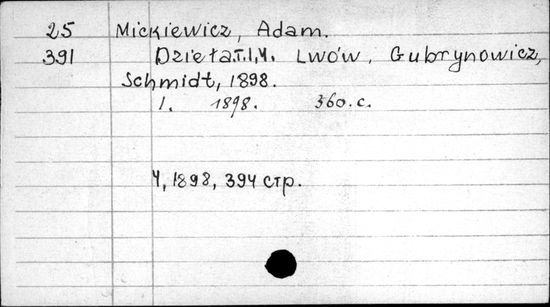 25 Mickiewicz, Adam.
391 Dzieła.T.1,4. Lwów, Gubrynowicz,
Schmidt, 1898.
1. 1898. 360.c.
4, 1898, 394 стр.